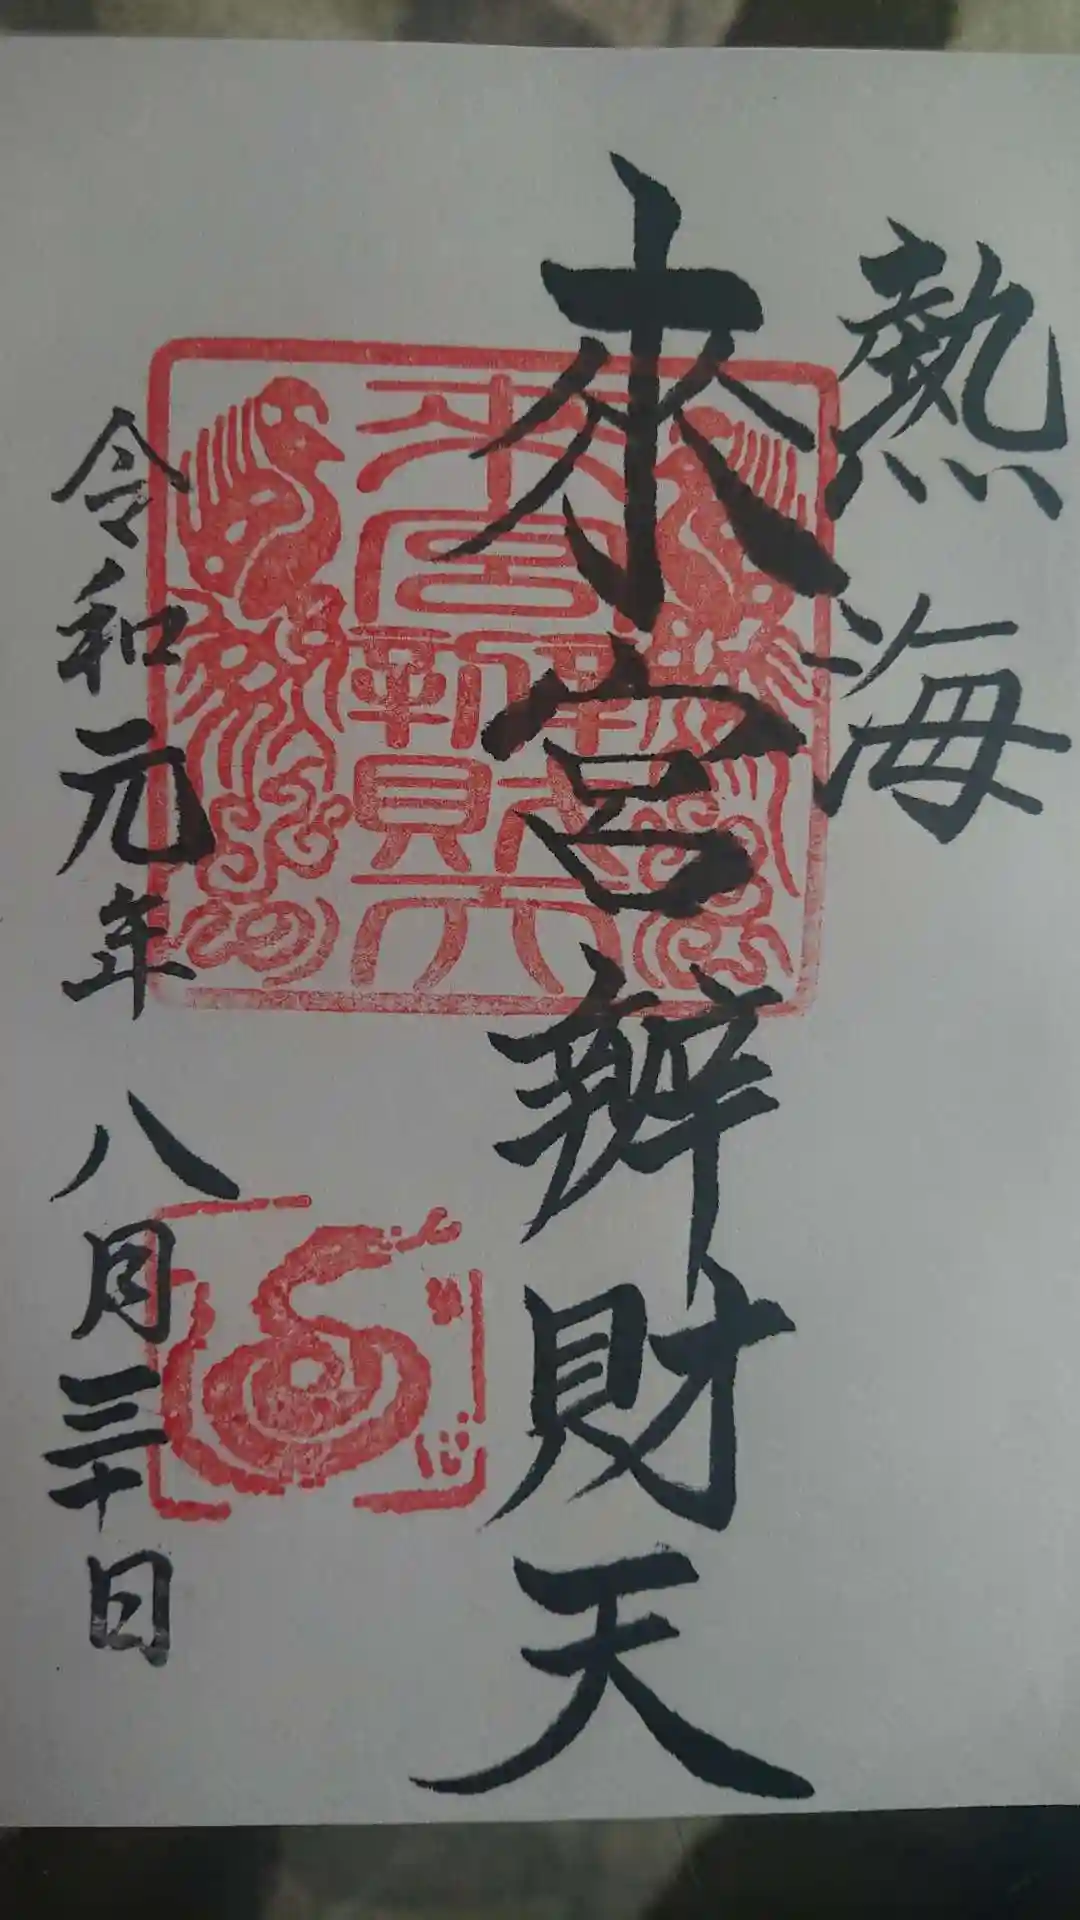 熱海
來宮辨財天
令和元年八月三十日